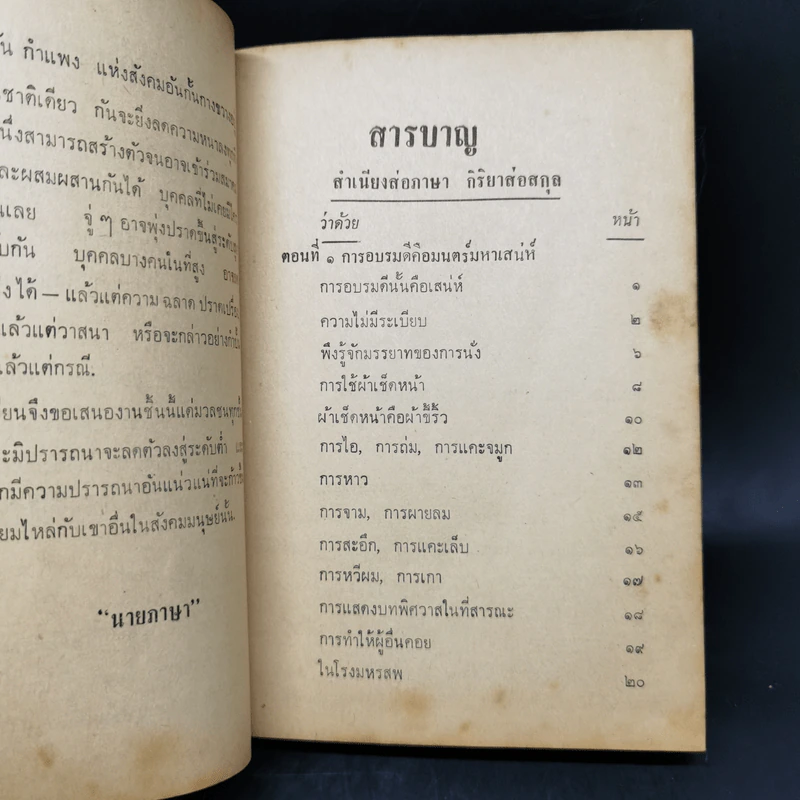 กำแพง แห่งสังคมอันกั้นกางขวาง
ชาติเดียว กันจะยิ่งลดความหนาลง
นึ่งสามารถสร้างตัวจนอาจเข้าร่วม
ละผสมผสานกันได้ บุคคลที่ไม่เคย
นเลย จู่ ๆ อาจพุ่งปราดขึ้นสู่ระดับ
กัน บุคคลบางคนในที่สูง อาจ
ได้ — แล้วแต่ความ ฉลาด ปราดเปรื่อง
แล้วแต่วาสนา หรือจะกล่าวอย่าง
ล้วแต่กรณี.
ยนจึงขอเสนองานชิ้นนี้แด่มวลชนทุก
ะมิปรารถนาจะลดตัวลงสู่ระดับต่ำ
กมีความปรารถนาอันแน่วแน่ที่จะ
ยมไหล่กับเขาอื่นในสังคมมนุษย์นั้น.
"นายภาษา"
สารบาญ
สำเนียงส่อภาษา กิริยาส่อสกุล
ว่าด้วย หน้า
ตอนที่ ๑ การอบรมดีคือมนตร์มหาเสน่ห์
การอบรมดีนั้นคือเสน่ห์ ๑
ความไม่มีระเบียบ ๒
พึงรู้จักมรรยาทของการนั่ง ๖
การใช้ผ้าเช็ดหน้า ๘
ผ้าเช็ดหน้าคือผ้าขี้ริ้ว ๑๐
การไอ, การถ่ม, การแคะจมูก ๑๒
การหาว ๑๓
การจาม, การผายลม ๑๕
การสะอึก, การแคะเล็บ ๑๖
การหวีผม, การเกา ๑๗
การแสดงบทพิศวาสในที่สารณะ ๑๘
การทำให้ผู้อื่นคอย ๑๙
ในโรงมหรสพ ๒๐